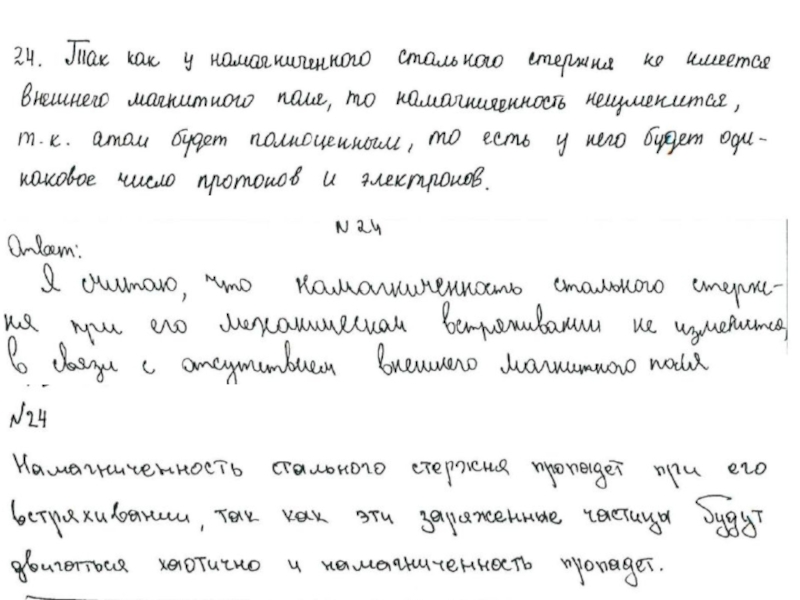 24. Так как у намагниченного стального стержня не имеется
внешнего магнитного поля, то намагниченность неизменится,
т.к. атом будет полноценным, то есть у него будет оди-
наковое число протонов и электронов.
N 24
Ответ:
Я считаю, что намагниченность стального стерж-
ня при его механическом встряхивании не изменится,
в связи с отсутствием внешнего магнитного поля
N24
Намагниченность стального стержня пропадет при его
встряхивании, так как эти заряженные частицы будут
двигаться хаотично и намагниченность пропадет.